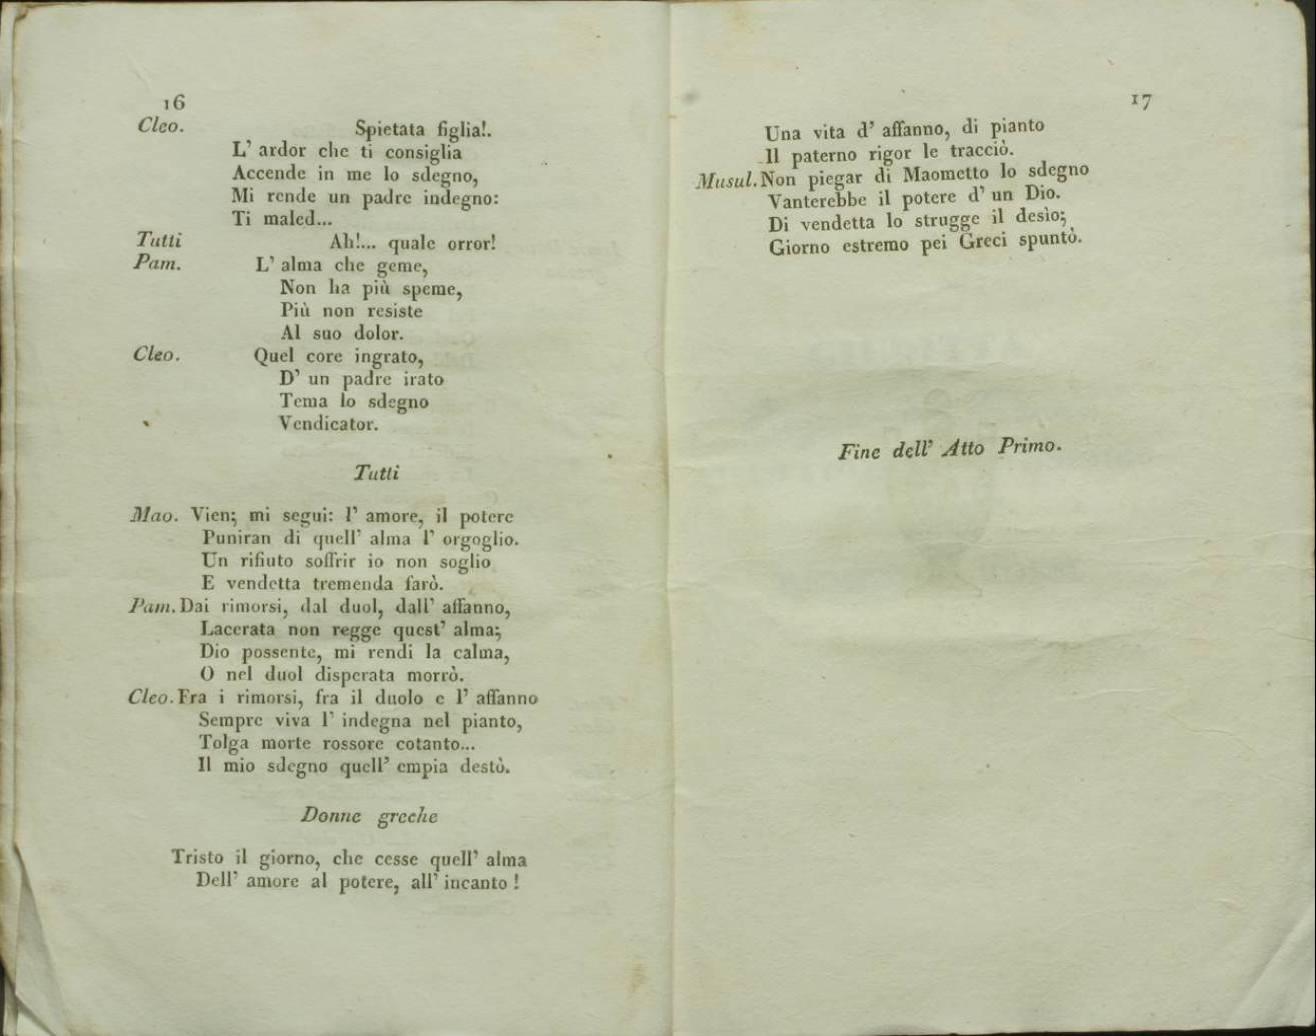 16
Cleo. Spietata figlia!.
L' ardor che ti consiglia
Accende in me lo sdegno,
Mi rende un padre indegno:
Ti maled...
Tutti Ah!... quale orror!
Pam. L' alma che geme,
Non ha più speme,
Più non resiste
Al suo dolor.
Cleo. Quel core ingrato,
D' un padre irato
Tema lo sdegno
Vendicator.
Tutti
Mao. Vien; mi segui: l' amore, il potere
Puniran di quell' alma l' orgoglio.
Un rifiuto soffrir io non soglio
E vendetta tremenda farò.
Pam. Dai rimorsi, dal duol, dall' affanno,
Lacerata non regge quest' alma;
Dio possente, mi rendi la calma,
O nel duol disperata morrò.
Cleo. Fra i rimorsi, fra il duolo e l' affanno
Sempre viva l' indegna nel pianto,
Tolga morte rossore cotanto...
Il mio sdegno quell' empia destò.
Donne greche
Tristo il giorno, che cesse quell' alma
Dell' amore al potere, all' incanto !
17
Una vita d' affanno, di pianto
Il paterno rigor le tracciò.
Musul. Non piegar di Maometto lo sdegno
Vanterebbe il potere d' un Dio.
Di vendetta lo strugge il desìo;
Giorno estremo pei Greci spuntò.
Fine dell' Atto Primo.